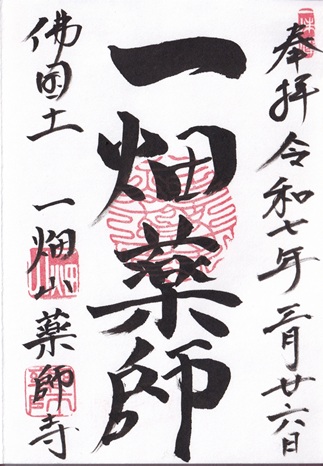 奉拝 令和七年 三月廿六日
一畑薬師
佛国土 一畑山 薬師寺